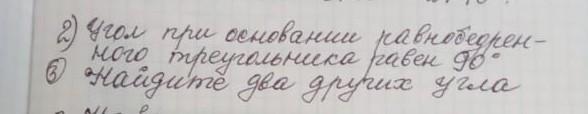 2) Угол при основании равнобедрен-
ного треугольника равен 90°
③ Найдите два других угла